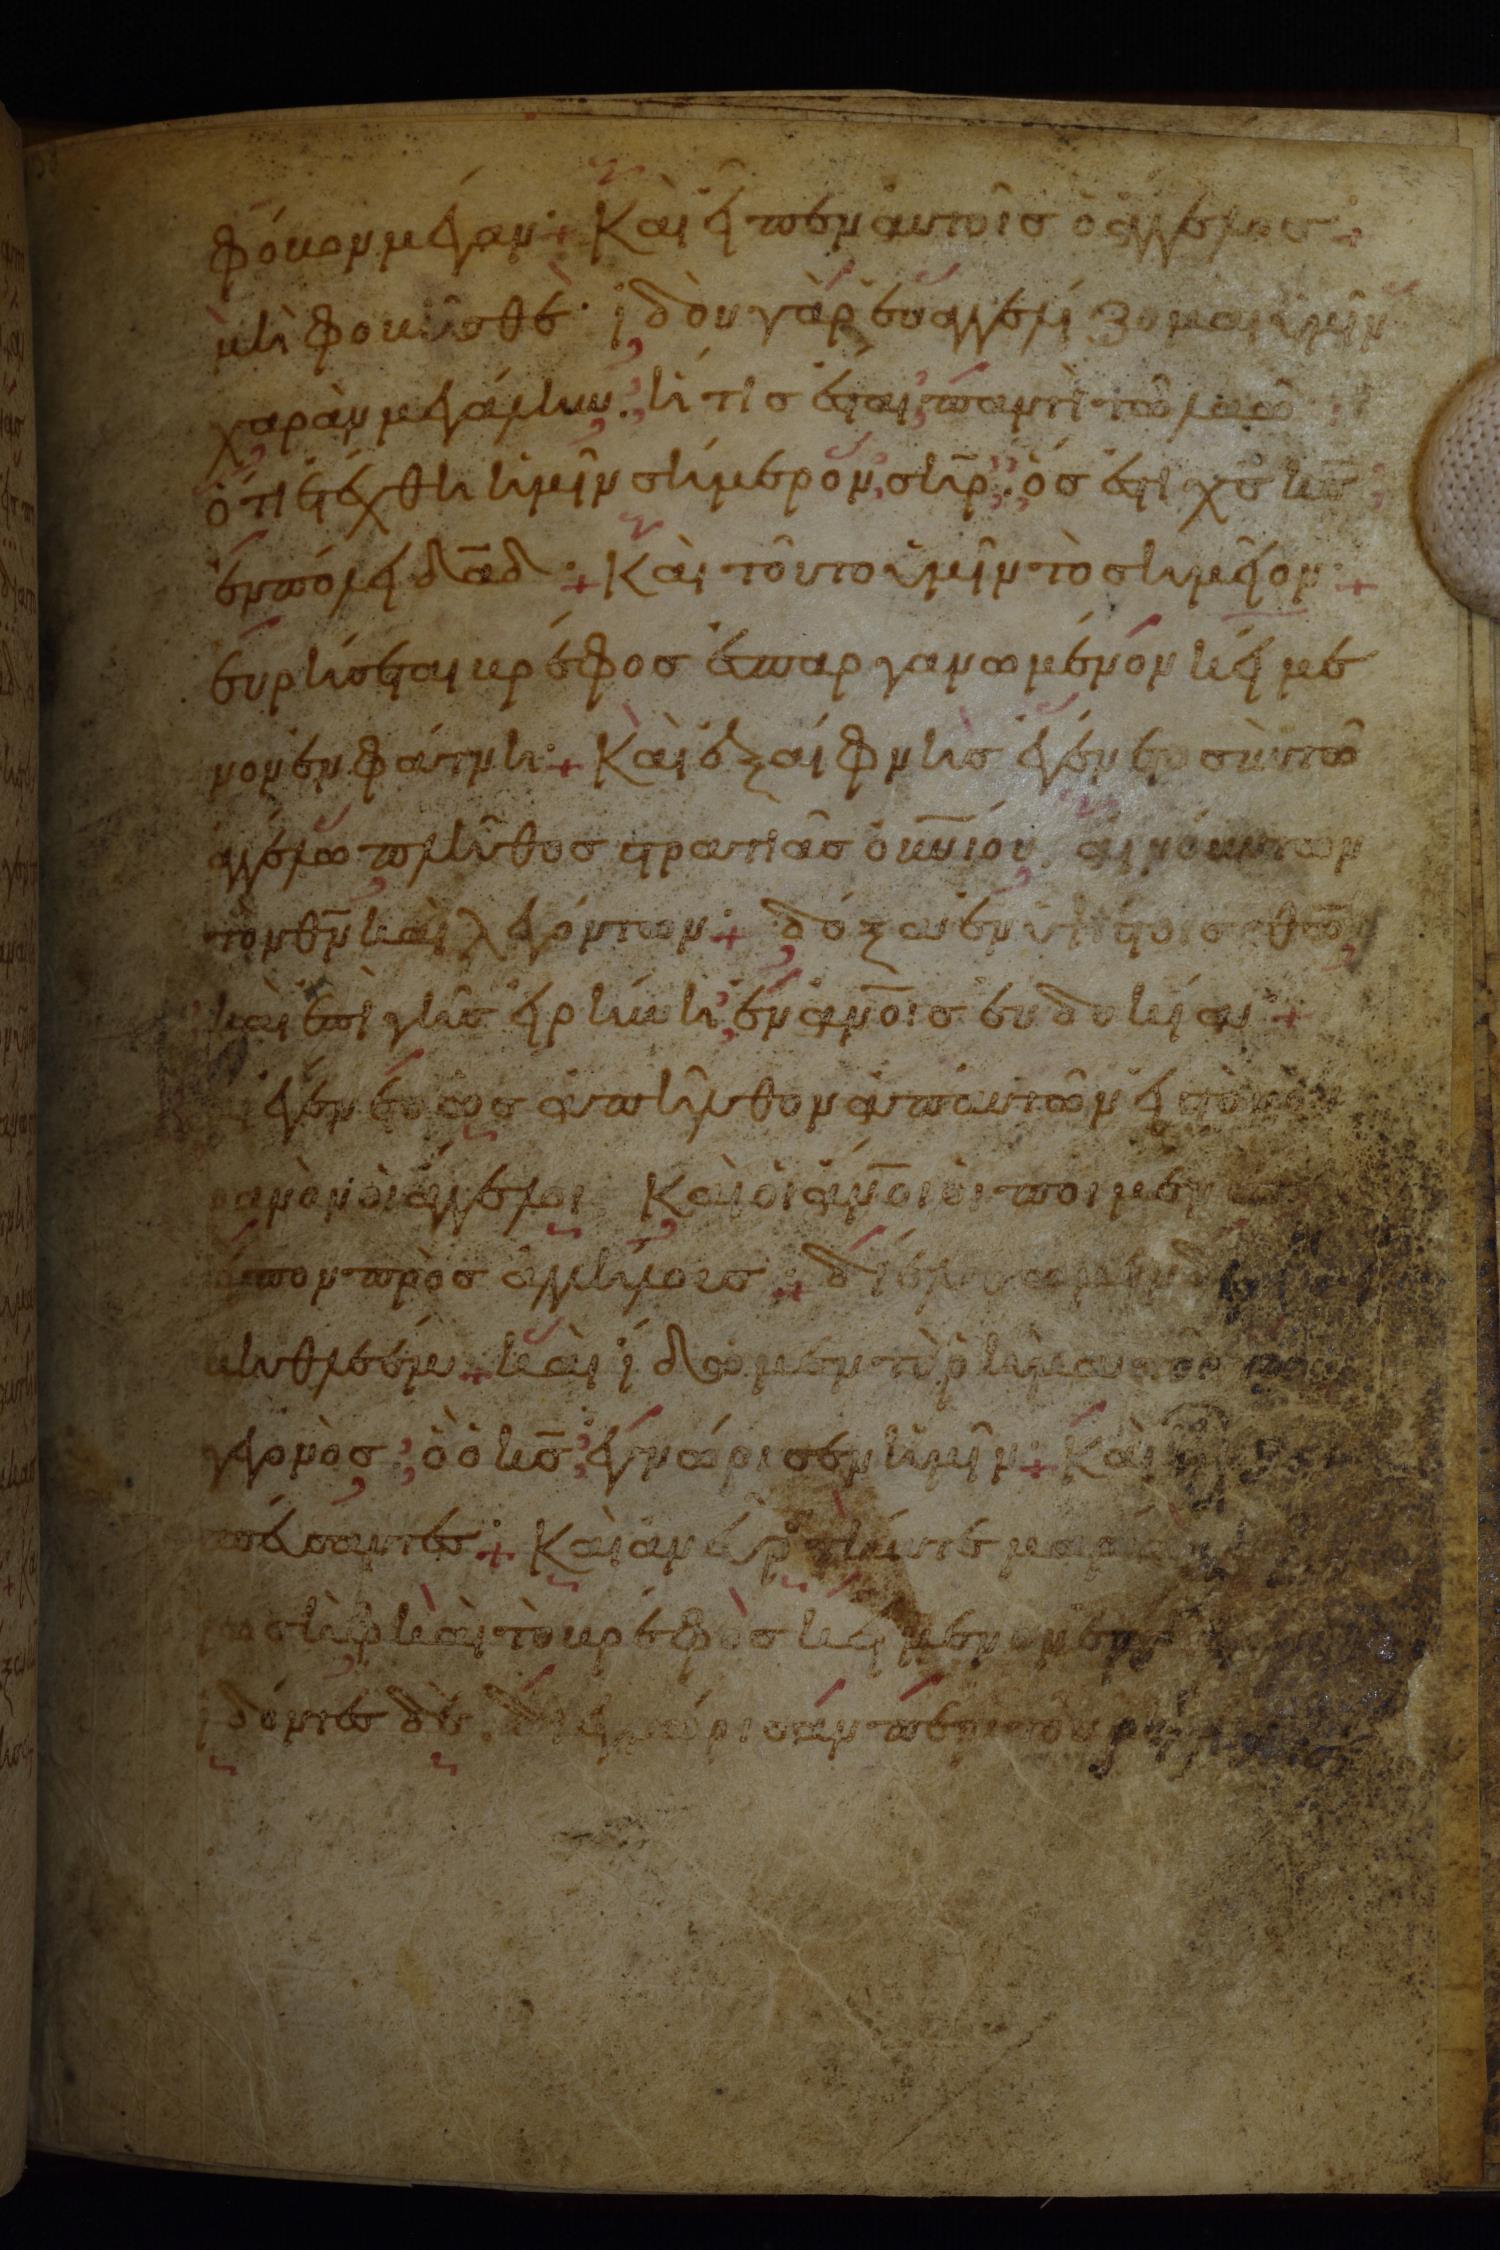 φόβον μέγαν· + Καὶ εἶπεν αὐτοῖς ὁ ἄγγελος +
μὴ φοβεῖσθε· ἰδοὺ γὰρ εὐαγγελίζομαι ὑμῖν
χαρὰν μεγάλην· ἥτις ἔσται παντὶ τῶ λαῶ
ὅτι ἐτέχθη ὑμῖν σήμερον σηρ̄· ὅς ἐστι χς̄ κς̄
ἐν πόλει δᾱδ· + Καὶ τοῦτο ὑμῖν τὸ σημεῖον· +
εὑρήσεται βρέφος ἐσπαργανωμένον κείμε
νον ἐν φάτνη· + Καὶ ἐξαίφνης ἐγένετο σὺν τῶ
ἀγγέλω πλῆθος στρατιᾶς οὐνίου, αἰνούντων
τὸν θν̄ καὶ λεγόντων· + δόξα ἐν ὑψίστοις θῶ
καὶ ἐπὶ γῆς εἰρήνη ἐν ἀνοις εὐδοκία· +
ἐγένετο ὡς ἀπῆλθον ἀπ' αὐτῶν εἰς τὸν οὐ
ρανὸν οἱ ἄγγελοι Καὶ οἱ ἄνοι οἱ ποιμένες
εἶπον πρὸς ἀλλήλους· + διέλθωμεν δὴ
βηθλεέμ + καὶ ἴδωμεν τὸ ῥῆμα τοῦτο τὸ
γεγονὸς· ὃ ὁ κς̄ ἐγνώρισεν ἡμῖν + Καὶ
σπεύσαντες· + Καὶ ἀνεῦρον τήν τε μαριὰμ
ιωσὴφ καὶ τὸ βρέφος κείμενον ἐν
ἰδόντες δὲ. διεγνώρισαν περὶ τοῦ ῥήματος